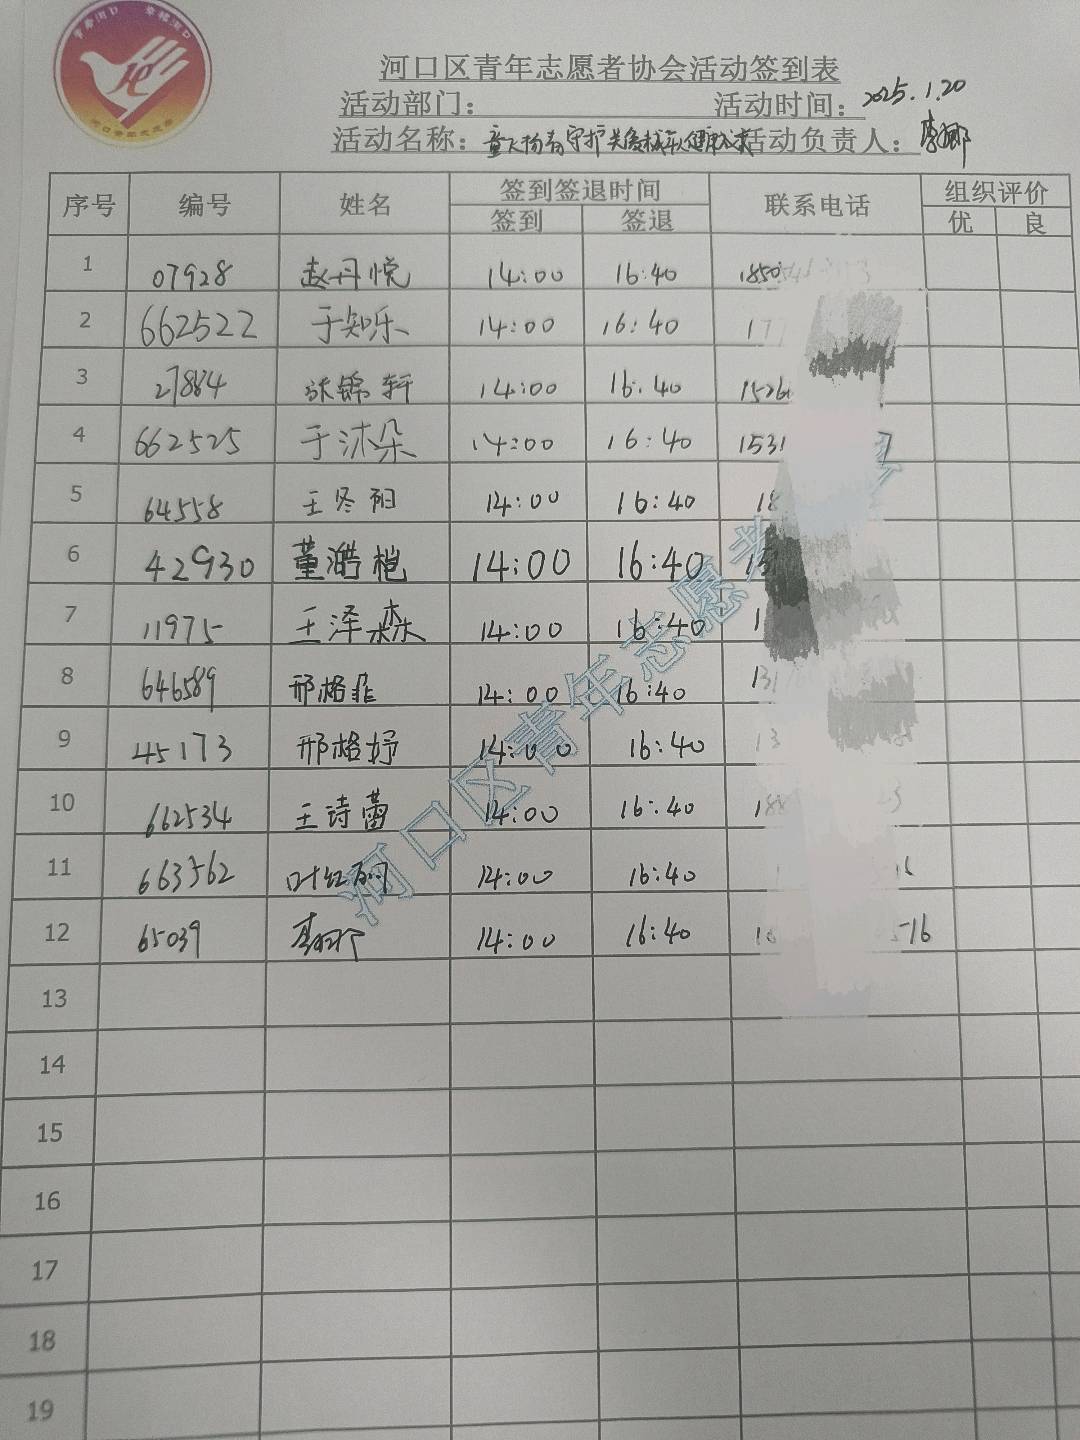 青春河口 幸福河口
河口区青年志愿者协会活动签到表
活动部门： 活动时间：2025.1.20
活动名称： 守护 活动负责人：
序号 编号 姓名 签到签退时间 联系电话 组织评价
签到 签退 优 良
1 07928 赵丹悦 14:00 16:40 1850
2 662522 于知乐 14:00 16:40 177
3 27884 张锦轩 14:00 16:40 1526
4 662525 于沐朵 14:00 16:40 1531 7
5 64558 王冬阳 14:00 16:40 18
6 42930 董澔桤 14:00 16:40 15
7 11975 王泽森 14:00 16:40 1
8 646589 邢格菲 14:00 16:40 131
9 45173 邢格妤 14:00 16:40 13
10 662534 王诗蕾 14:00 16:40 188
11 663562 叶红丽 14:00 16:40 1
12 65039 14:00 16:40 18 16
13
14
15
16
17
18
19
河口区青年志愿者